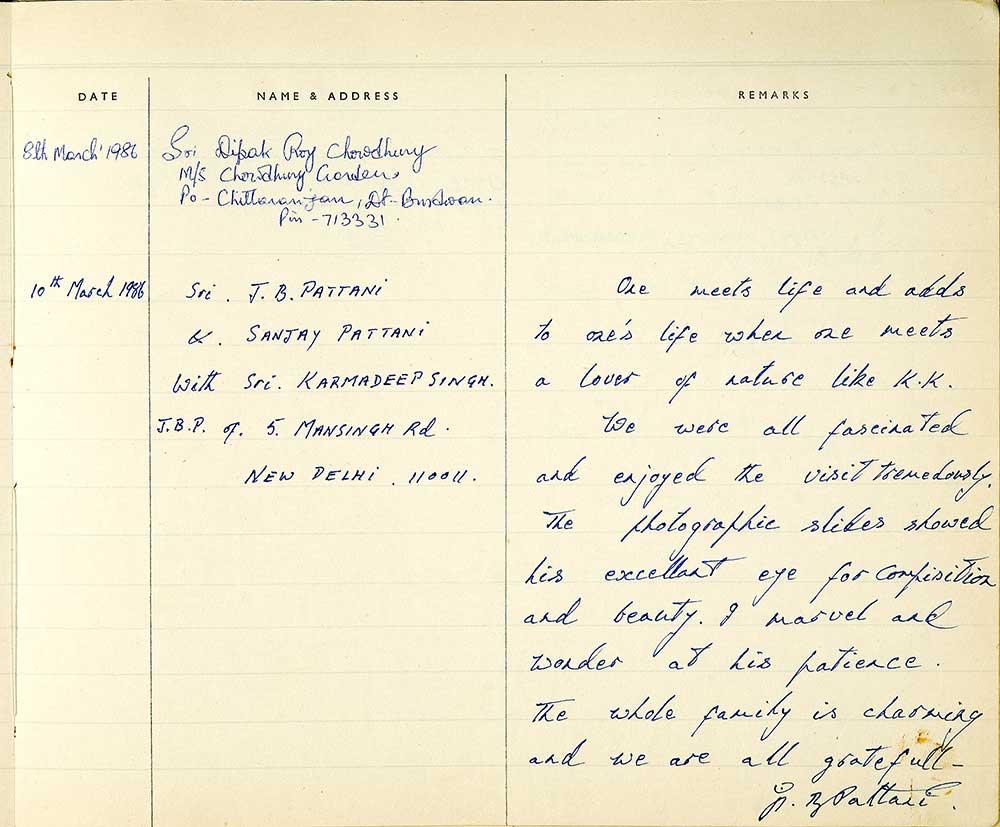 DATE
NAME & ADDRESS
REMARKS
8th March' 1986
Sri Dipak Roy Chowdhury
M/s Chowdhury Garden,
Po - Chittaranjan, Dt - Burdwan.
Pin - 713331.
10th March 1986
Sri. J. B. PATTANI
&. SANJAY PATTANI
With Sri. KARMADEEP SINGH.
J.B.P. of. 5. MANSINGH Rd.
NEW DELHI. 110011.
One meets life and adds
to one's life when one meets
a lover of nature like K.K.
We were all fascinated
and enjoyed the visit tremedously.
The photographic slides showed
his excellant eye for compisition
and beauty. I marvel and
wonder at his patience.
The whole family is charming
and we are all gratefull -
J. B Pattani.